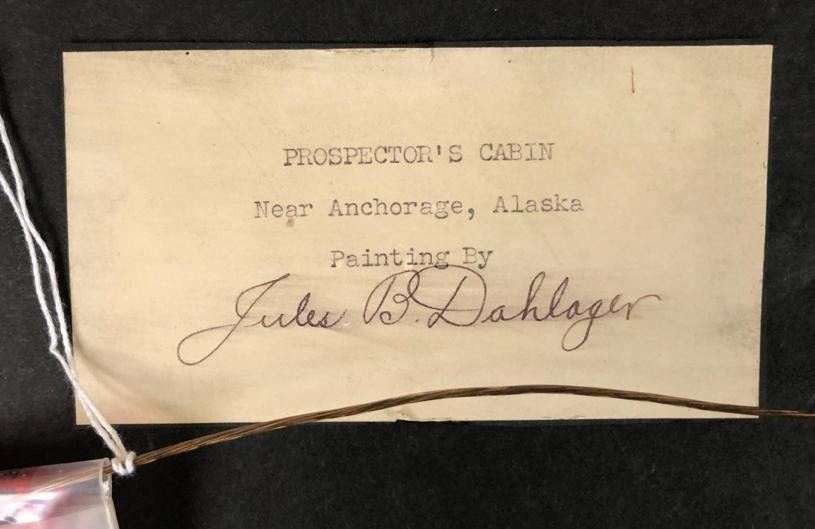 PROSPECTOR'S CABIN
Near Anchorage, Alaska
Painting By
Jules B. Dahlager